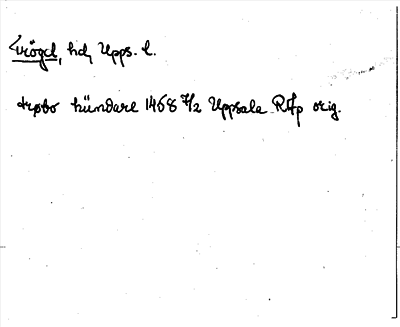 <Trögd, hd, Upps. l.
trøbo hundare 1468 7/2 Uppsala RAp orig.